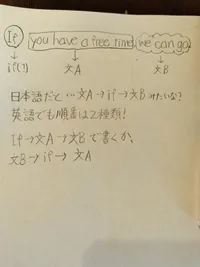 If you have a free time, we can go.
if(?) 文A 文B
日本語だと…文A→if→文Bみたいな?
英語でも順番は2種類!
If→文A→文Bで書くか、
文B→if→文A